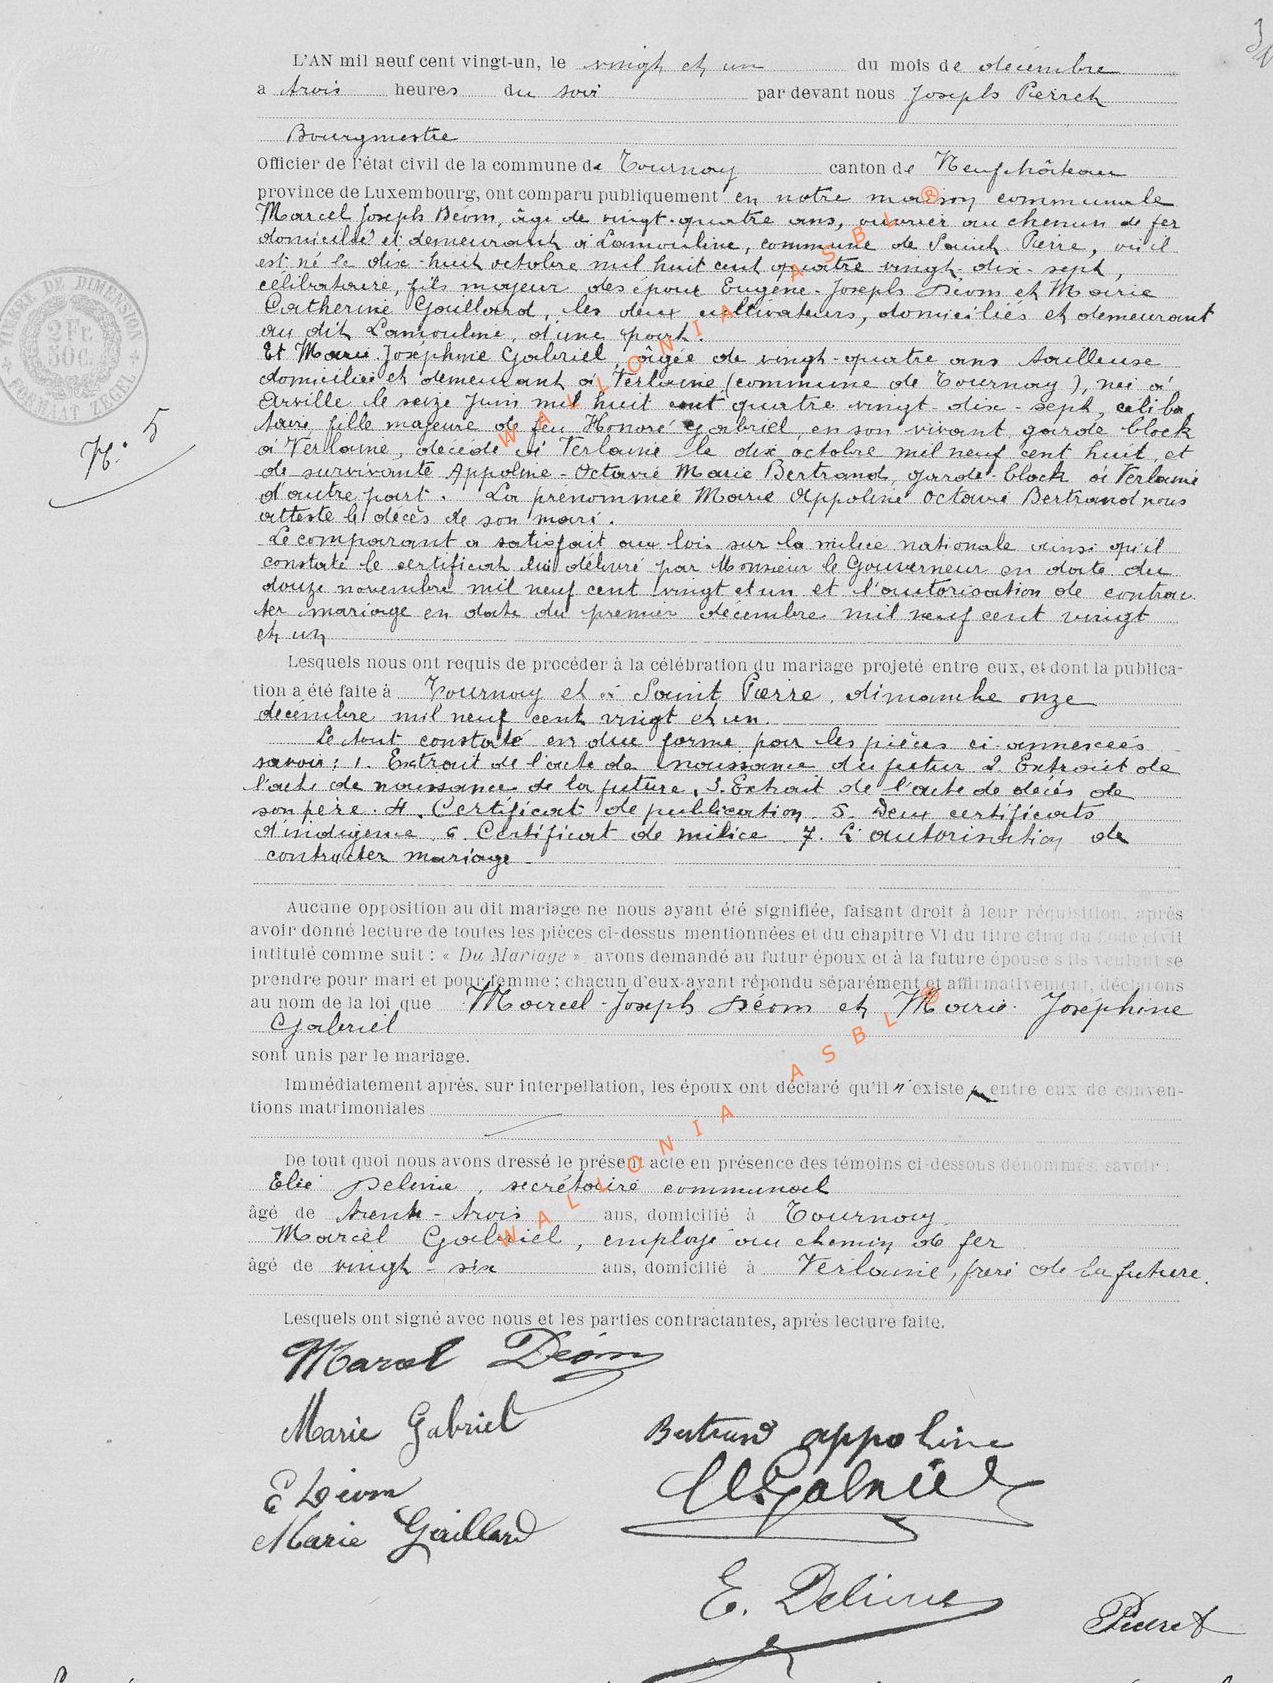 L'AN mil neuf cent vingt-un, le vingt et un du mois de décembre
a trois heures du soir par devant nous Joseph Pierret
Bourgmestre
Officier de l'état civil de la commune de Tournay canton de Neufchâteau
province de Luxembourg, ont comparu publiquement en notre maison communale
Marcel Joseph Déom, âgé de vingt-quatre ans, ouvrier au chemin de fer
domicilié et demeurant à Lamouline, commune de Saint Pierre, où il
est né le dix-huit octobre mil huit cent quatre vingt-dix-sept,
célibataire, fils majeur des époux Eugène-Joseph Déom et Marie
Catherine Gaillard, les deux cultivateurs, domiciliés et demeurant
au dit Lamouline, d'une part.
Et Marie Joséphine Gabriel âgée de vingt-quatre ans tailleuse
domiciliée et demeurant à Verlaine (commune de Tournay), née à
Arville le seize juin mil huit cent quatre vingt-dix-sept, céliba
taire, fille majeure de feu Honoré Gabriel, en son vivant garde block
à Verlaine, décédé à Verlaine le dix octobre mil neuf cent huit, et
de survivante Appoline-Octavie Marie Bertrand, garde-block à Verlaine
d'autre part. La prénommée Marie Appoline Octavie Bertrand nous
atteste le décès de son mari.
Le comparant a satisfait aux lois sur la milice nationale ainsi qu'il
constate le certificat lui délivré par Monsieur le Gouverneur en date du
douze novembre mil neuf cent vingt et un et l'autorisation de contrac
ter mariage en date du premier décembre mil neuf cent vingt
et un
Lesquels nous ont requis de procéder à la célébration du mariage projeté entre eux, et dont la publica-
tion a été faite à Tournay et à Saint Pierre, dimanche onze
décembre mil neuf cent vingt et un.
Le tout constaté en due forme par les pièces ci-annexées
savoir: 1. Extrait de l'acte de naissance du futur 2. Extrait de
l'acte de naissance de la future, 3. Extrait de l'acte de décès de
son père. 4. Certificat de publication 5. Deux certificats
d'indigence 6. Certificat de milice 7. L'autorisation de
contracter mariage
Aucune opposition au dit mariage ne nous ayant été signifiée, faisant droit à leur réquisition, après
avoir donné lecture de toutes les pièces ci-dessus mentionnées et du chapitre VI du titre cinq du Code civil
intitulé comme suit : « Du Mariage » avons demandé au futur époux et à la future épouse s'ils veulent se
prendre pour mari et pour femme ; chacun d'eux ayant répondu séparément et affirmativement, déclarons
au nom de la loi que Marcel-Joseph Déom et Marie-Joséphine
Gabriel
sont unis par le mariage.
Immédiatement après, sur interpellation, les époux ont déclaré qu'il n'existe p entre eux de conven-
tions matrimoniales
De tout quoi nous avons dressé le présent acte en présence des témoins ci-dessous dénommés, savoir :
Elie Delime, secrétaire communal
âgé de trente-trois ans, domicilié à Tournay
Marcel Gabriel, employé au chemin de fer
âgé de vingt-six ans, domicilié à Verlaine, frère de la future.
Lesquels ont signé avec nous et les parties contractantes, après lecture faite.
Marcel Déom
Marie Gabriel
Bertrand appoline
E Déom
M. Gabriel
Marie Gaillard
E. Delime
Pierret
N: 5
TIMBRE DE DIMENSION
2 Fr.
50 C.
FORMAAT ZEGEL
WALLONIA ASBL ®
WALLONIA ASBL ®